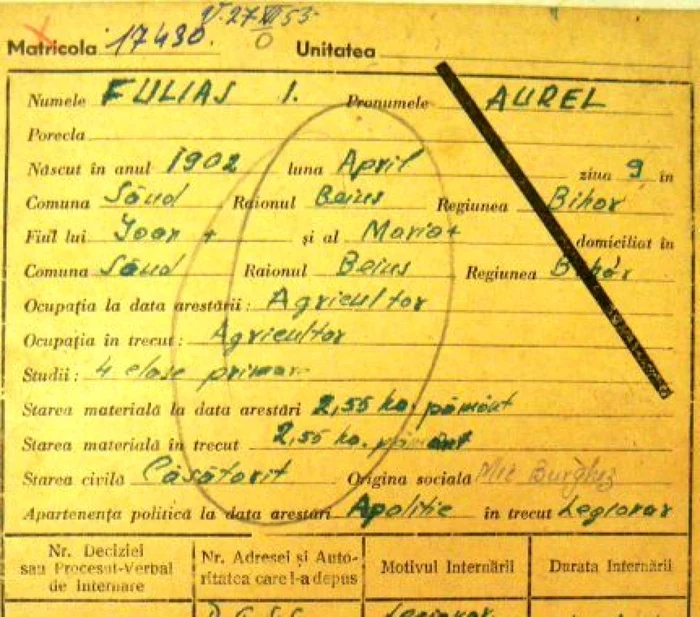 V. 27 XII 53
Matricola 17430. Unitatea
Numele FULIAS I. Pronumele AUREL
Porecla
Născut în anul 1902 luna April ziua 9 în
Comuna Săud Raionul Beius Regiunea Bihor
Fiul lui Ioan + și al Maria + domiciliat în
Comuna Săud Raionul Beius Regiunea Bihor
Ocupația la data arestării: Agricultor
Ocupația în trecut: Agricultor
Studii: 4 clase primar
Starea materială la data arestări 2,55 ha. pămînt
Starea materială în trecut 2,55 ha. pămînt
Starea civilă Căsătorit Origina sociala Mic Burghez
Apartenența politică la data arestări Apolitic în trecut Legionar
Nr. Deciziei sau Procesul-Verbal de Internare
Nr. Adresei și Autoritatea care l-a depus
Motivul Internării
Durata Internării
Legionar